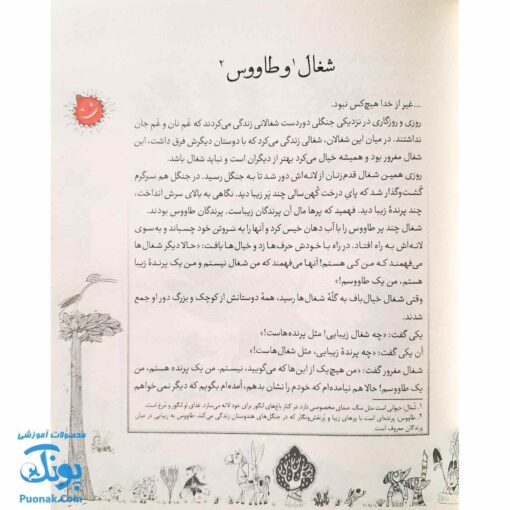 شغال۱ و طاووس۲
...غیر از خدا هیچ‌کس نبود.
روزی و روزگاری در نزدیکی جنگلی دوردست شغالانی زندگی می‌کردند که غم نان و غم جان
نداشتند. در میان این شغالان، شغالی زندگی می‌کرد که با دوستان دیگرش فرق داشت، این
شغال مغرور بود و همیشه خیال می‌کرد بهتر از دیگران است و نباید شغال باشد.
روزی همین شغال قدم‌زنان از لانه‌اش دور شد تا به جنگل رسید. در جنگل هم سرگرم
گشت‌وگذار شد که پای درخت کُهن‌سالی چند پَر زیبا دید. نگاهی به بالای سرش انداخت،
چند پرندهٔ زیبا دید. فهمید که پرها مال آن پرندگان زیباست. پرندگان طاووس بودند.
شغال چند پر طاووس را با آب دهان خیس کرد و آنها را به سَروتن خود چسباند و به‌سوی
لانه‌اش به راه افتاد. در راه با خودش حرف‌ها زد و خیال‌ها بافت: «حالا دیگر شغال‌ها
می‌فهمند که من کی هستم! آنها می‌فهمند که من شغال نیستم و من یک پرندهٔ زیبا
هستم، من یک طاووسم!»
وقتی شغال خیال‌باف به گلّهٔ شغال‌ها رسید، همهٔ دوستانش از کوچک و بزرگ دور او جمع
شدند.
یکی گفت: «چه شغال زیبایی! مثل پرنده‌هاست!»
آن یکی گفت: «چه پرندهٔ زیبایی، مثل شغال‌هاست!»
شغال مغرور گفت: «من هیچ‌یک از این‌ها که می‌گویید، نیستم. من یک پرنده هستم، من
یک طاووسم! حالا هم نیامده‌ام که خودم را نشان بدهم، آمده‌ام بگویم که دیگر نمی‌خواهم
۱. شغال: حیوانی است مثل سگ. صدای مخصوصی دارد. در کنار باغ‌های انگور برای خود لانه می‌سازد. غذای او انگور و مُرغ است.
۲. طاووس: پرنده‌ای است با پرهای زیبا و پُرنقش‌ونگار که در جنگل‌های هندوستان زندگی می‌کند. طاووس به زیبایی در میان
پرندگان معروف است.
محصولات آموزشی
پونک
Puonak.Com